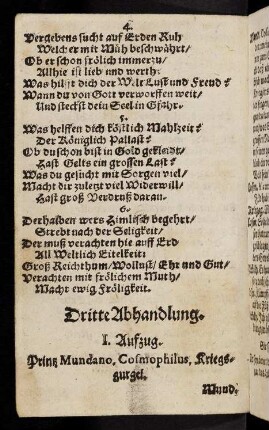 4.
Vergebens sucht auf Erden Ruh/
Welcher mit Müh beschwährt/
Ob er schon frölich immerzu/
Allhie ist lieb und werth:
Was hilft dich der Welt Lust und Freud?
Wann du von Gott verworffen weit/
Und steckst dein Seel in Gfahr.
5.
Was helffen dich köstlich Mahlzeit?
Der Königlich Pallast?
Ob du schon bist in Gold gekleidt/
Hast Gelts ein grossen Last?
Was du gesucht mit Sorgen viel/
Macht dir zuletzt viel Widerwill/
Hast groß Verdruß daran.
6.
Derhalben wers Zimlisch begehrt/
Strebt nach der Seligkeit/
Der muß verachten hie auff Erd
All Weltlich Eitelkeit:
Groß Reichthum/ Wollust/ Ehr und Gut/
Verachten mit frölichem Muth/
Macht ewig Fröligkeit.
Dritte Abhandlung.
I. Aufzug.
Printz Mundano, Cosmophilus, Kriegs-
gurgel.
Mund.